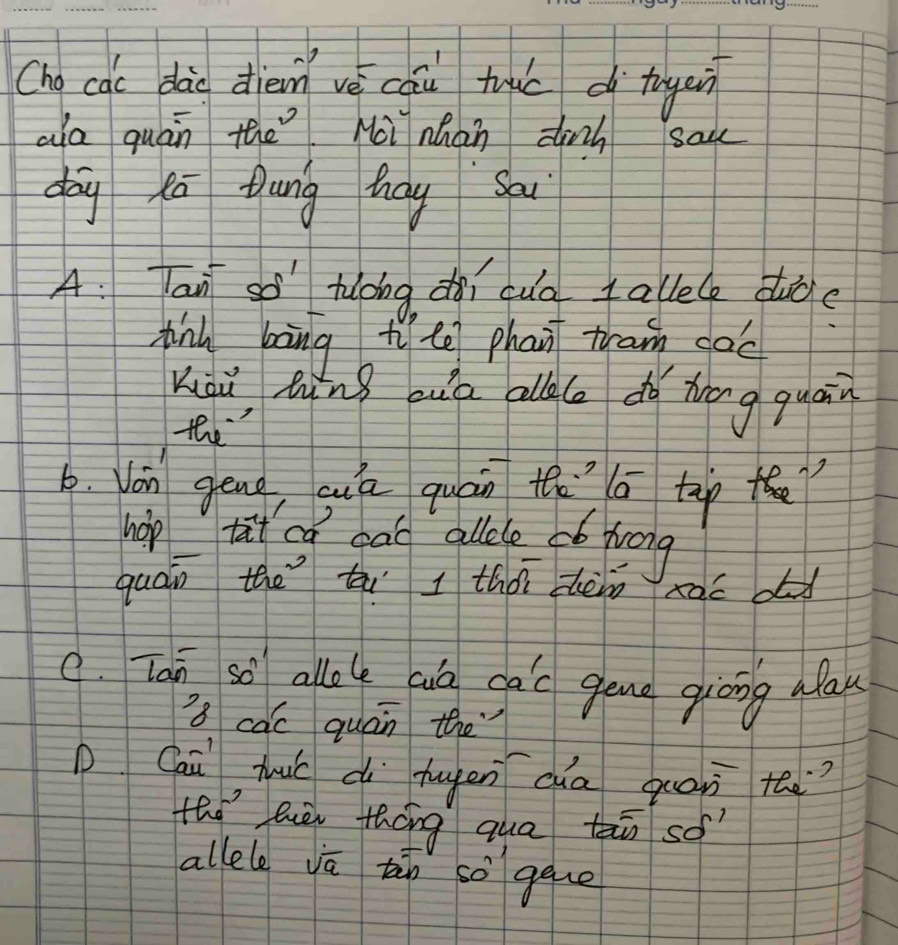 Thứ ngày tháng
Cho các đặc điểm về cấu trúc di truyền
của quần thể. Mỗi nhận định sau
đây là Đúng hay Sai
A: Tần số tương đối của 1 allele được
tính bằng tỉ lệ phần trăm các
kiểu hình của allele đó trong quần
thể
b. Vốn gene của quần thể là tập
hợp tất cả các allele có trong
quần thể tại 1 thời điểm xác định
C. Tần số allele của các gene giống nhau
ở các quần thể
D. Cấu trúc di truyền của quần thể
thể hiện thông qua tần số
allele và tần số gene